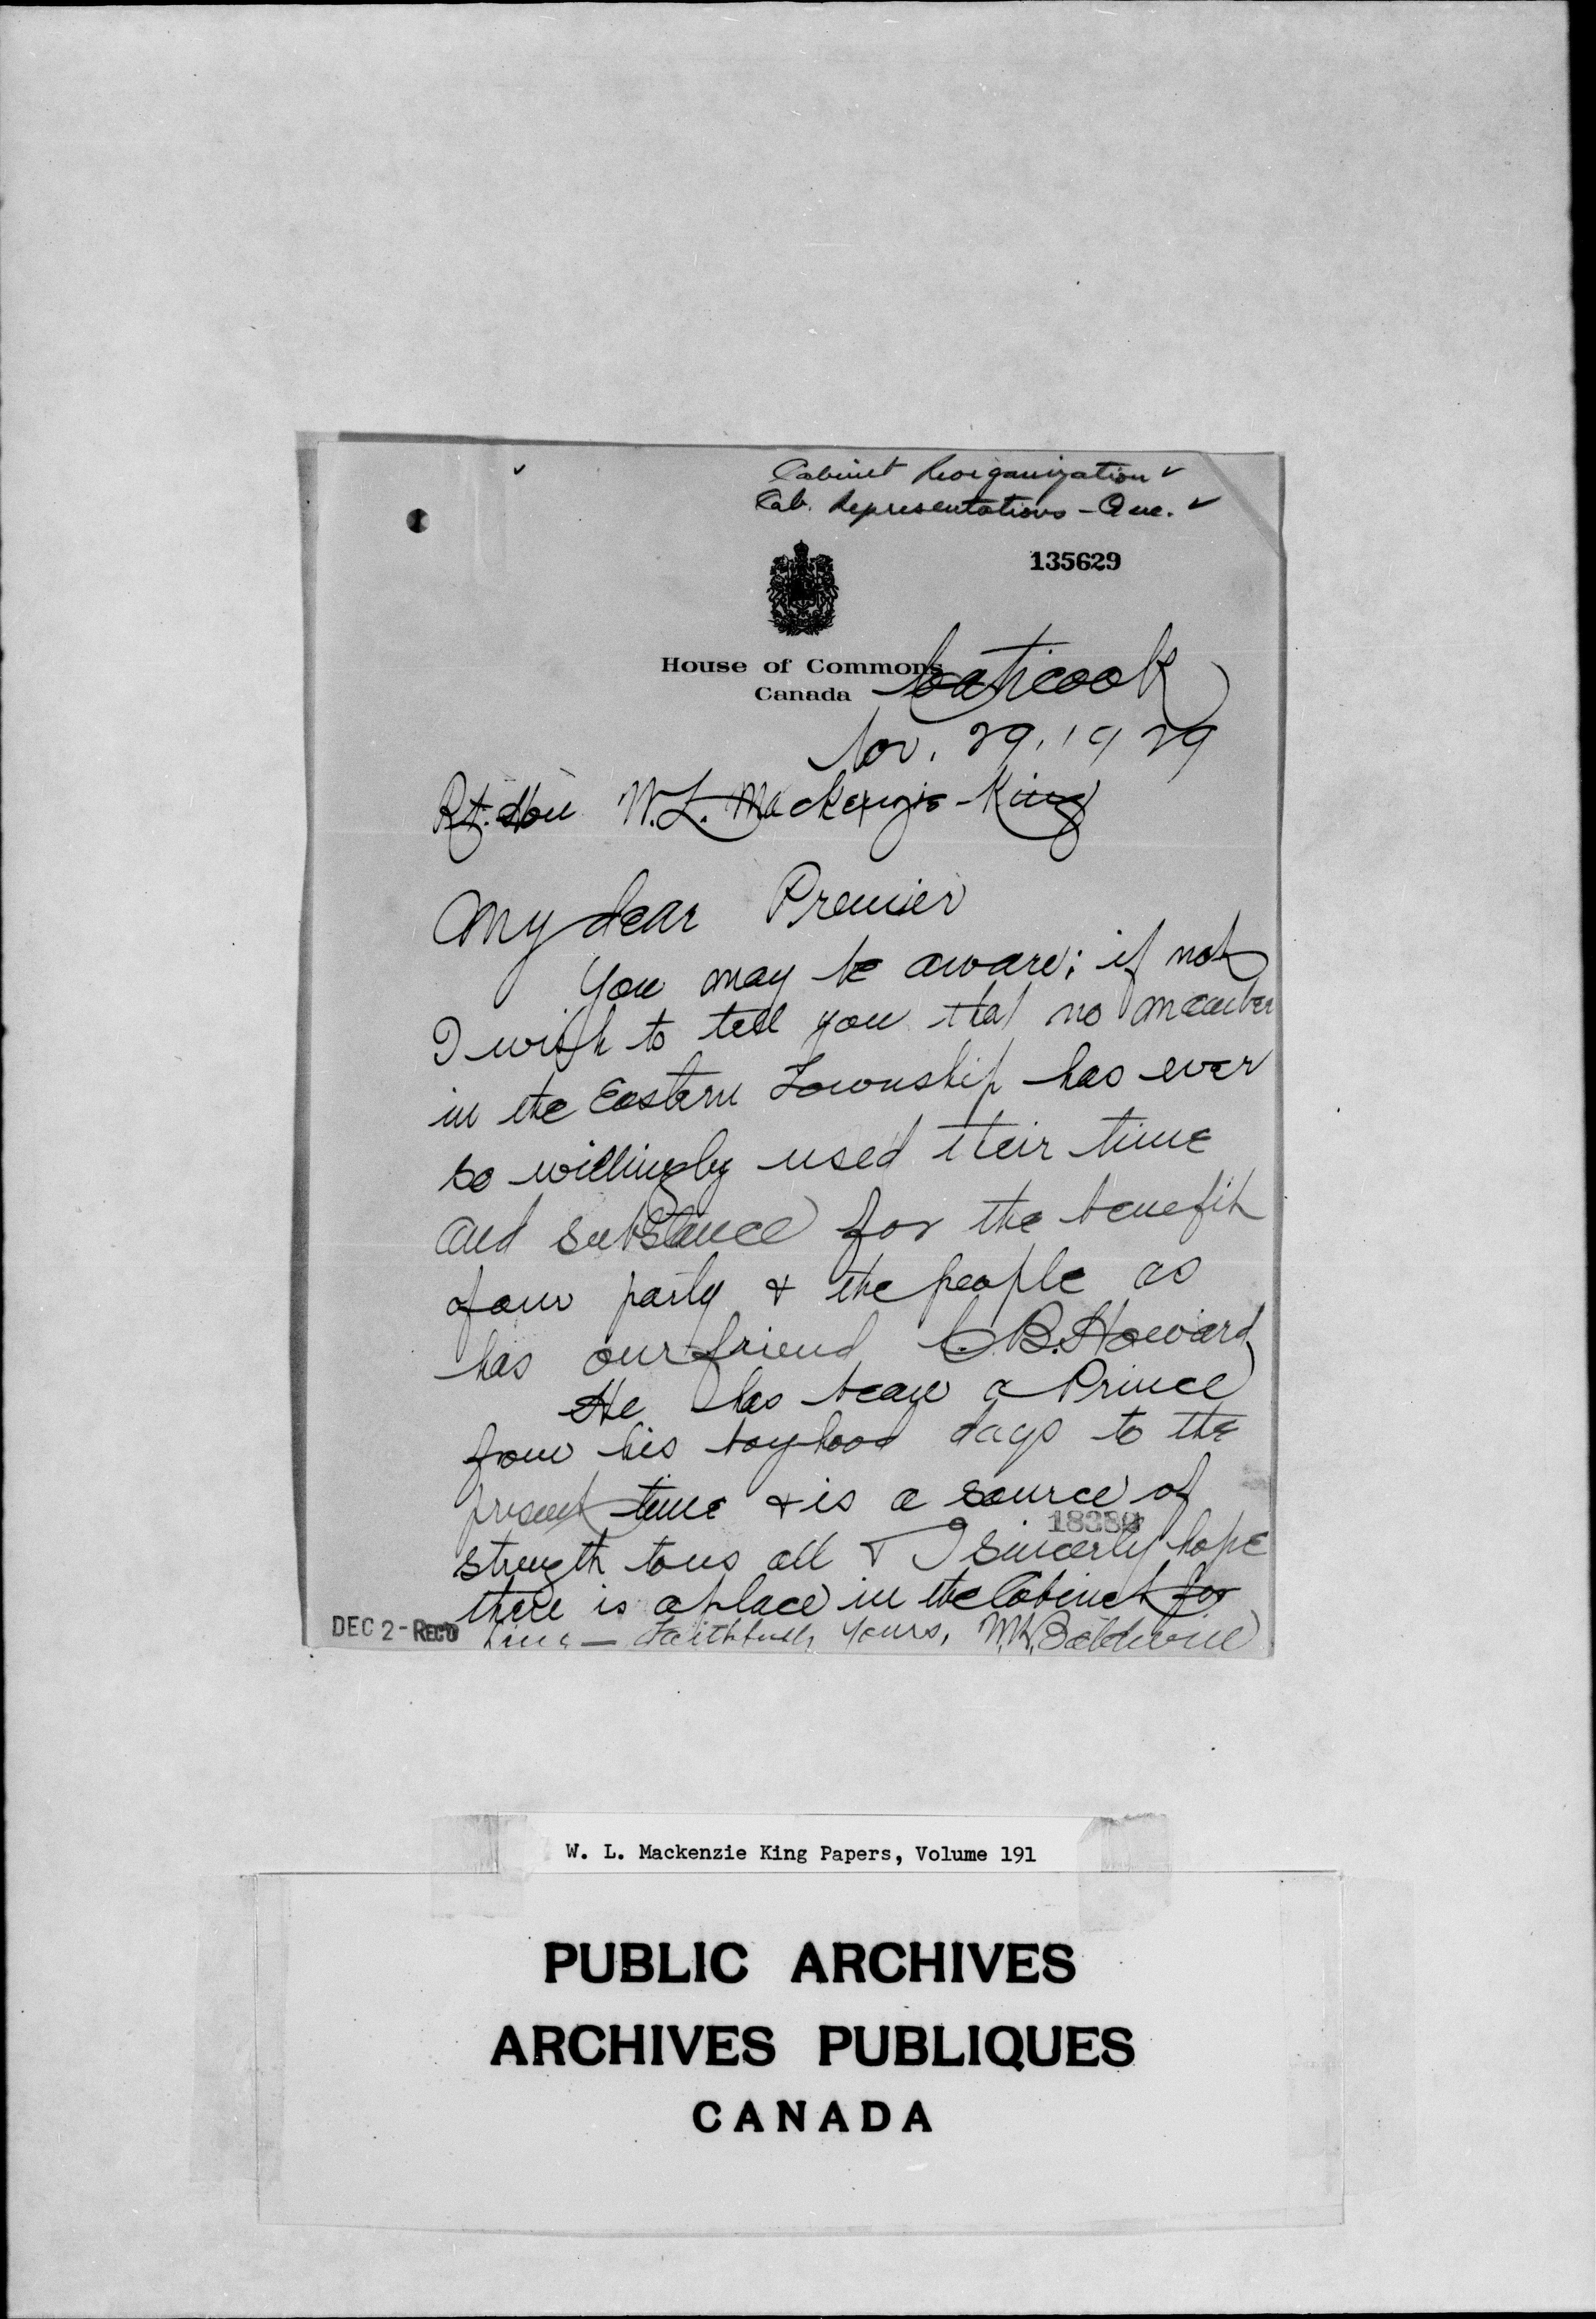 Cabinet Reorganization ✓
Cab. Representations - Que. ✓
135629
House of Commons
Canada
Coaticook
Nov. 29, 1929
Rt. Hon W.L. Mackenzie-King
My dear Premier
You may be aware; if not
I wish to tell you that no member
in the Eastern Township has ever
so willingly used their time
and substance for the benefit
of our party & the people as
has our friend C.B. Howard
He has been a Prince
from his boyhood days to the
present time & is a source of
strength to us all & I sincerly hope
there is a place in the Cabinet for
him — Faithfully Yours, W.K. Baldwin
DEC 2 - REC'D
W. L. Mackenzie King Papers, Volume 191
PUBLIC ARCHIVES
ARCHIVES PUBLIQUES
CANADA